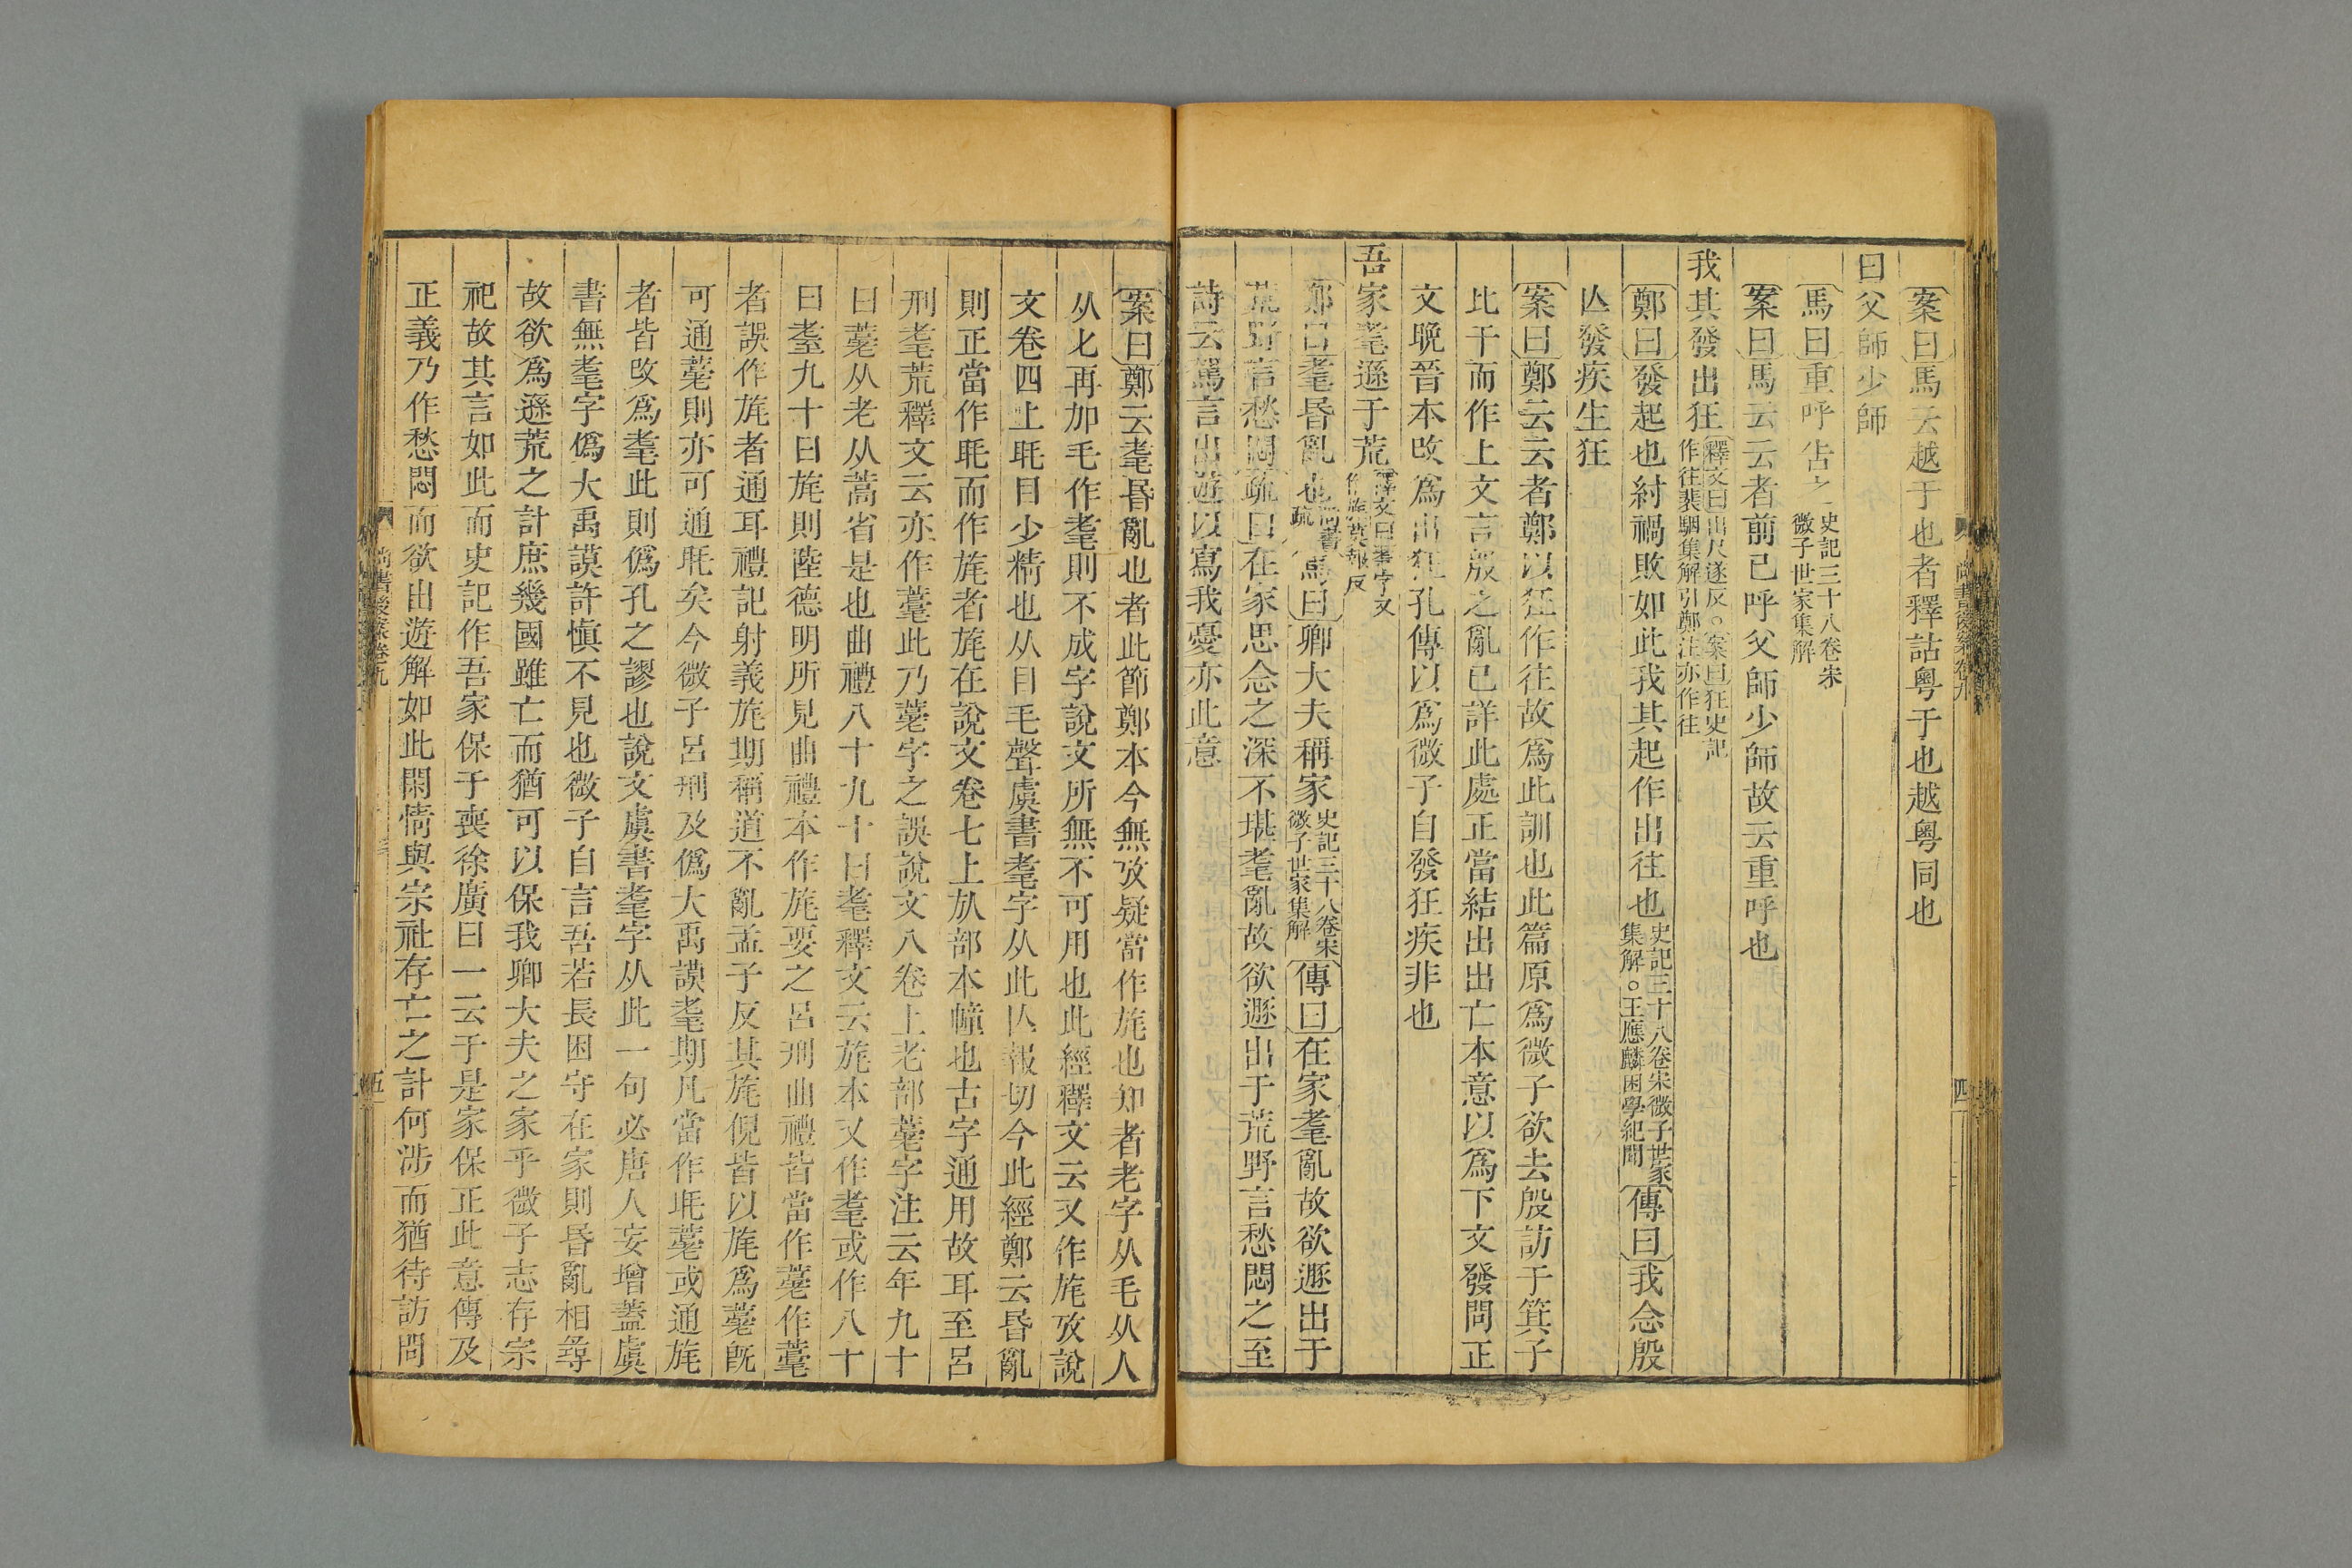 案曰馬云越于也者釋詁粤于也越粤同也
曰父師少師
馬曰重呼告之史記三十八卷宋微子世家集解
案曰馬云云者前已呼父師少師故云重呼也
我其發出狂釋文曰出尺遂反○案曰狂史記作往裴駰集解引鄭注亦作往
鄭曰發起也紂禍敗如此我其起作出往也史記三十八卷宋微子世家集解○王應麟困學紀聞傳曰我念殷
亾發疾生狂
案曰鄭云云者鄭以狂作往故爲此訓也此篇原爲微子欲去殷訪于箕子
比干而作上文言殷之亂已詳此處正當結出出亡本意以爲下文發問正
文晚晉本改爲出狂孔傳以爲微子自發狂疾非也
吾家耄遜于荒釋文曰耄字又作旄莫報反
鄭曰耄昏亂也尚書疏馬曰卿大夫稱家史記三十八卷宋微子世家集解傳曰在家耄亂故欲遯出于
荒野言愁悶疏曰在家思念之深不堪耄亂故欲遯出于荒野言愁悶之至
詩云駕言出遊以寫我憂亦此意
尚書後案卷九
四
案曰鄭云耄昏亂也者此節鄭本今無攷疑當作旄也知者老字从毛从人
从匕再加毛作耄則不成字說文所無不可用也此經釋文云又作旄攷說
文卷四上眊目少精也从目毛聲虞書耄字从此亾報切今此經鄭云昏亂
則正當作眊而作旄者旄在說文卷七上㫃部本幢也古字通用故耳至呂
刑耄荒釋文云亦作薹此乃薹字之誤說文八卷上老部薹字注云年九十
曰薹从老从蒿省是也曲禮八十九十曰耄釋文云旄本又作耄或作八十
曰耋九十曰旄則陸德明所見曲禮本作旄要之呂刑曲禮皆當作薹作薹
者誤作旄者通耳禮記射義旄期稱道不亂孟子反其旄倪皆以旄爲薹旣
可通薹則亦可通眊矣今微子呂刑及僞大禹謨耄期凡當作眊薹或通旄
者皆改爲耄此則僞孔之謬也說文虞書耄字从此一句必唐人妄增蓋虞
書無耄字僞大禹謨許愼不見也微子自言吾若長困守在家則昏亂相尋
故欲爲遜荒之計庶幾國雖亡而猶可以保我卿大夫之家乎微子志存宗
祀故其言如此而史記作吾家保于喪徐廣曰一云于是家保正此意傳及
正義乃作愁悶而欲出遊解如此閑情與宗社存亡之計何涉而猶待訪問
尚書後案卷九
五